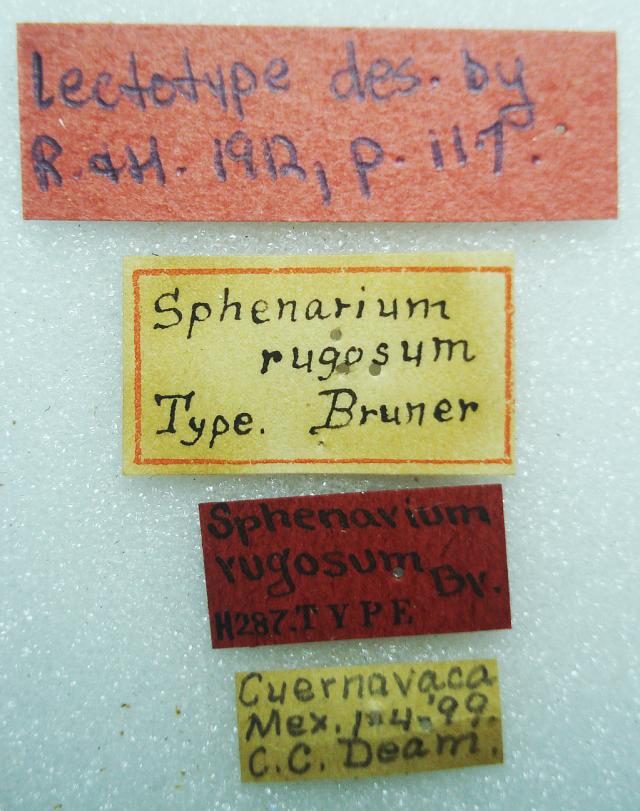 Lectotype des. by
R. & H. 1912, p. 117.
Sphenarium
rugosum
Type. Bruner
Sphenarium
rugosum Br.
H287. TYPE
Cuernavaca
Mex. 1-4-'99.
C.C. Deam.